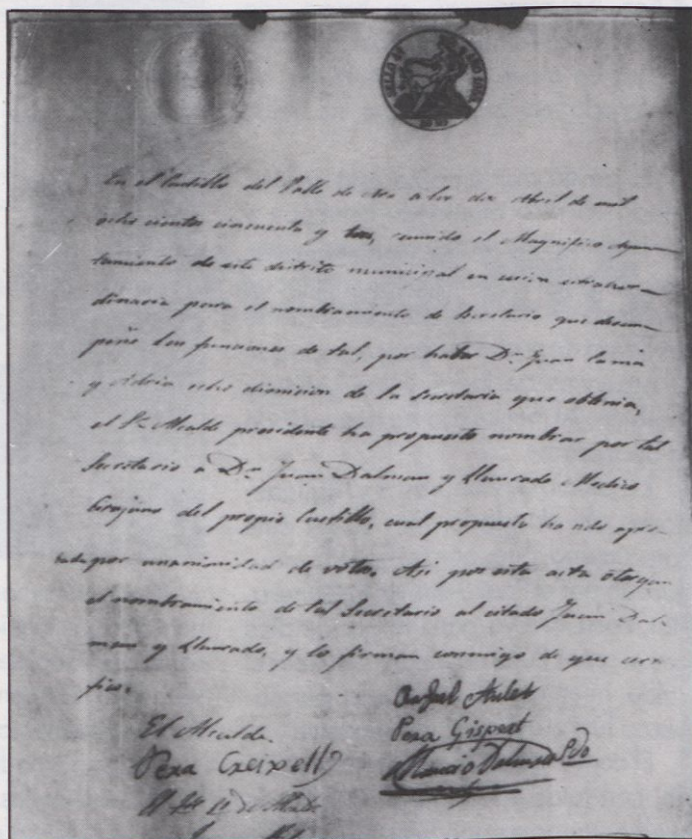 En el Castillo del Valle de Aro a los dos Abril de mil
ocho cientos cincuenta y tres, reunido el Magnifico Ayun-
tamiento de este distrito municipal en sesion estraor-
dinaria para el nombramiento de Secretario que desem-
peñe las funciones de tal, por haber Dn. Juan
y hecho dimision de la Secretaria que obtenia,
el Sr. Alcalde presidente ha propuesto nombrar por tal
Secretario a Dn. Juan Dalmau y Llaurado Medico
Cirujano del propio Castillo, cual propuesta ha sido apro-
bada por unanimidad de votos. Asi por esta acta otorgan
el nombramiento de tal Secretario al citado Juan Dal-
mau y Llaurado, y lo firman conmigo de que cer-
fico.
El Alcalde
Pera Creixell
Anjel Aulet
Pera Gispert
Dalmau